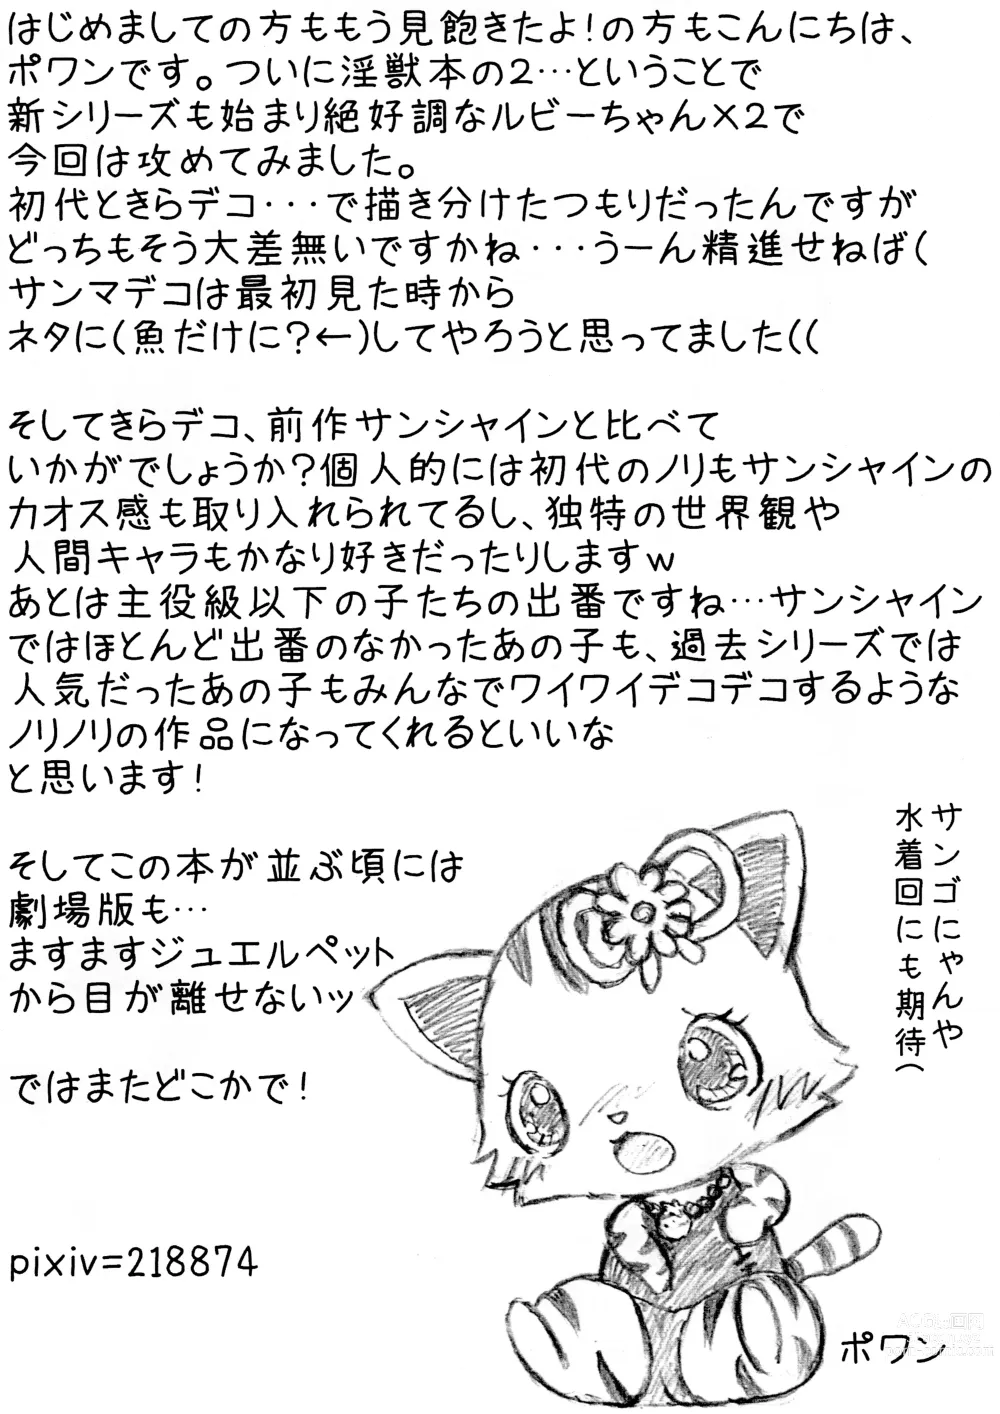 はじめましての方ももう見飽きたよ!の方もこんにちは、
ポワンです。ついに淫獣本の2…ということで
新シリーズも始まり絶好調なルビーちゃん×2で
今回は攻めてみました。
初代ときらデコ・・・で描き分けたつもりだったんですが
どっちもそう大差無いですかね・・・うーん精進せねば(
サンマデコは最初見た時から
ネタに(魚だけに?←)してやろうと思ってました((
そしてきらデコ、前作サンシャインと比べて
いかがでしょうか?個人的には初代のノリもサンシャインの
カオス感も取り入れられてるし、独特の世界観や
人間キャラもかなり好きだったりしますw
あとは主役級以下の子たちの出番ですね…サンシャイン
ではほとんど出番のなかったあの子も、過去シリーズでは
人気だったあの子もみんなでワイワイデコデコするような
ノリノリの作品になってくれるといいな
と思います!
そしてこの本が並ぶ頃には
劇場版も…
ますますジュエルペット
から目が離せないッ
ではまたどこかで!
サンゴにゃんや
水着回にも期待(
pixiv=218874
ポワン